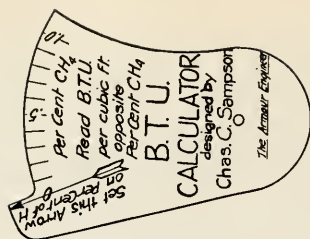 10.
5
0
Per Cent CH4
Read B.T.U.
per cubic Ft.
opposite
Per Cent CH4
B. T. U.
CALCULATOR
designed by
Chas. C. Sampson
The Armour Engineer
Set this Arrow
on Per Cent of H